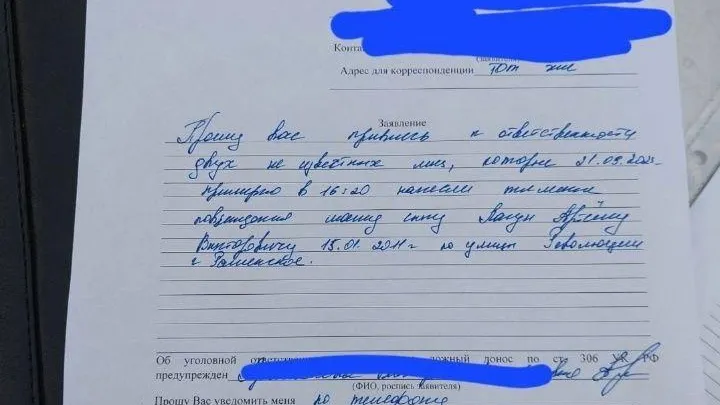 Конта
Адрес для корреспонденции тот же
Заявление
Прошу вас привлечь к ответственности
двух не известных лиц, которые 21.09.202
примерно в 16:20 нанесли телесные
повреждения моему сыну Артёму
Викторовичу 15.01.2011г по улицы Революции
г. Раменское.
Об уголовной ложный донос по ст. 306 УК РФ
предупрежден
(ФИО, роспись заявителя)
Прошу Вас уведомить меня по телефону